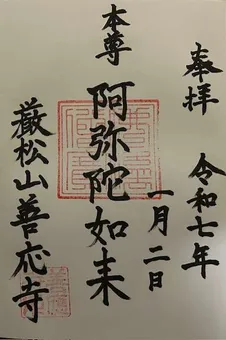 奉拝
令和七年
一月二日
本尊
阿弥陀如来
厳松山善応寺